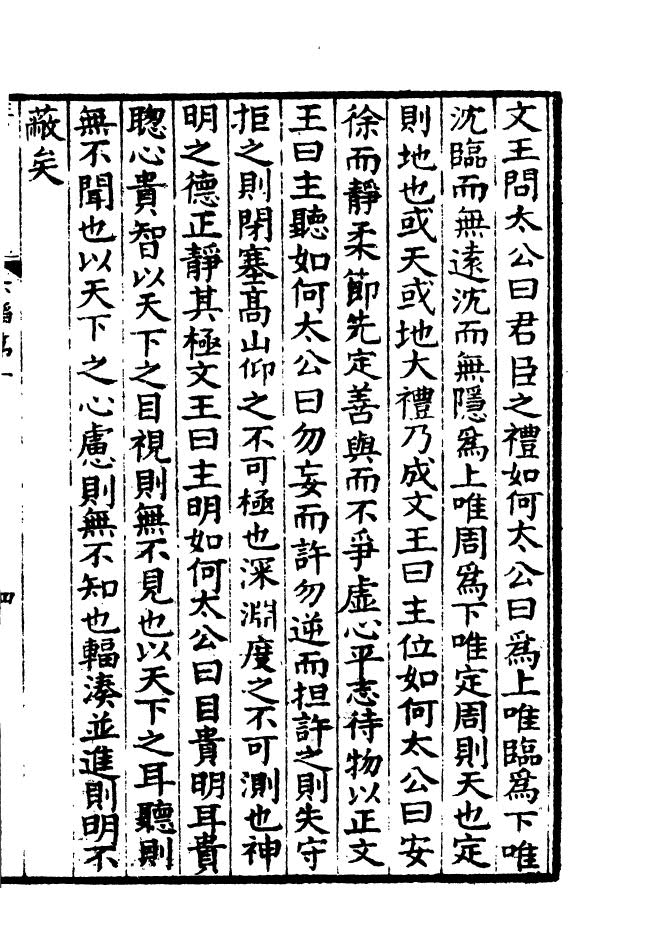 文王問太公曰君臣之禮如何太公曰爲上唯臨爲下唯
沈臨而無遠沈而無隱爲上唯周爲下唯定周則天也定
則地也或天或地大禮乃成文王曰主位如何太公曰安
徐而靜柔節先定善與而不爭虛心平志待物以正文
王曰主聽如何太公曰勿妄而許勿逆而担許之則失守
拒之則閉塞高山仰之不可極也深淵度之不可測也神
明之德正靜其極文王曰主明如何太公曰目貴明耳貴
聦心貴智以天下之目視則無不見也以天下之耳聽則
無不聞也以天下之心慮則無不知也輻湊並進則明不
蔽矣
四